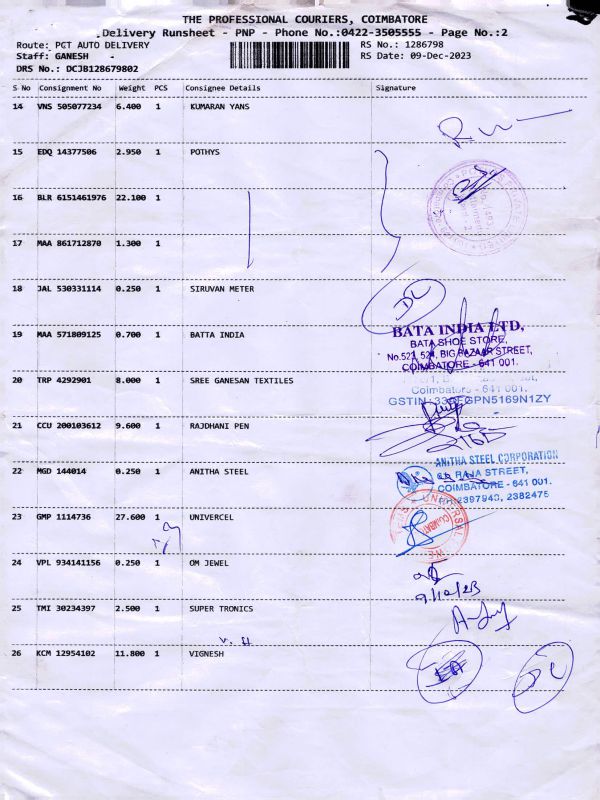 THE PROFESSIONAL COURIERS, COIMBATORE
Delivery Runsheet - PNP - Phone No.:0422-3505555 - Page No.:2
Route: PCT AUTO DELIVERY RS No.: 1286798
Staff: GANESH - RS Date: 09-Dec-2023
DRS No.: DCJB128679802
S No Consignment No Weight PCS Consignee Details Signature
14 VNS 505077234 6.400 1 KUMARAN YANS
15 EDQ 14377506 2.950 1 POTHYS
16 BLR 6151461976 22.100 1
17 MAA 861712870 1.300 1
18 JAL 530331114 0.250 1 SIRUVAN METER
DC
19 MAA 571809125 0.700 1 BATTA INDIA
BATA INDIA LTD,
BATA SHOE STORE,
No.523, 524, BIG BAZAAR STREET,
COIMBATORE - 641 001.
20 TRP 4292901 8.000 1 SREE GANESAN TEXTILES
Coimbatore - 641 001.
21 CCU 200103612 9.600 1 RAJDHANI PEN
22 MGD 144014 0.250 1 ANITHA STEEL
ANITHA STEEL CORPORATION
RAJA STREET,
COIMBATORE - 641 001.
2382475
23 GMP 1114736 27.600 1 UNIVERCEL
24 VPL 934141156 0.250 1 OM JEWEL
9/12/23
25 TMI 30234397 2.500 1 SUPER TRONICS
26 KCM 12954102 11.800 1 VIGNESH
DC